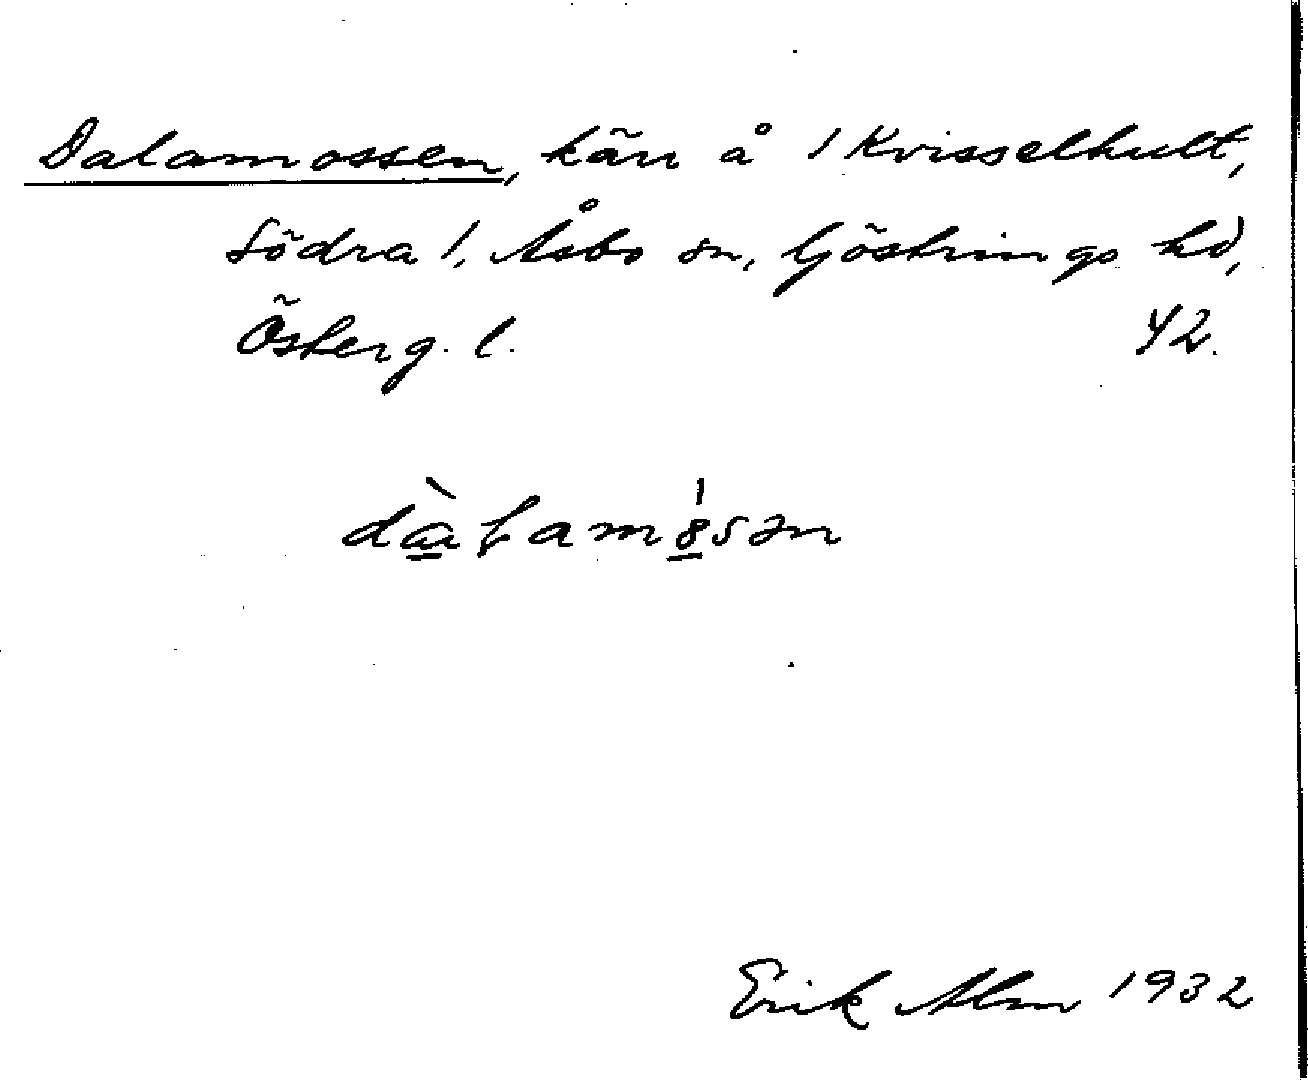 Dalamossen, kärr å 1 Kvisselhult,
Södra 1, Åsbo sn, Göstrings hd,
Österg. l. 42.
dàɑ̱łamȯ̱sən
Erik Alm 1932